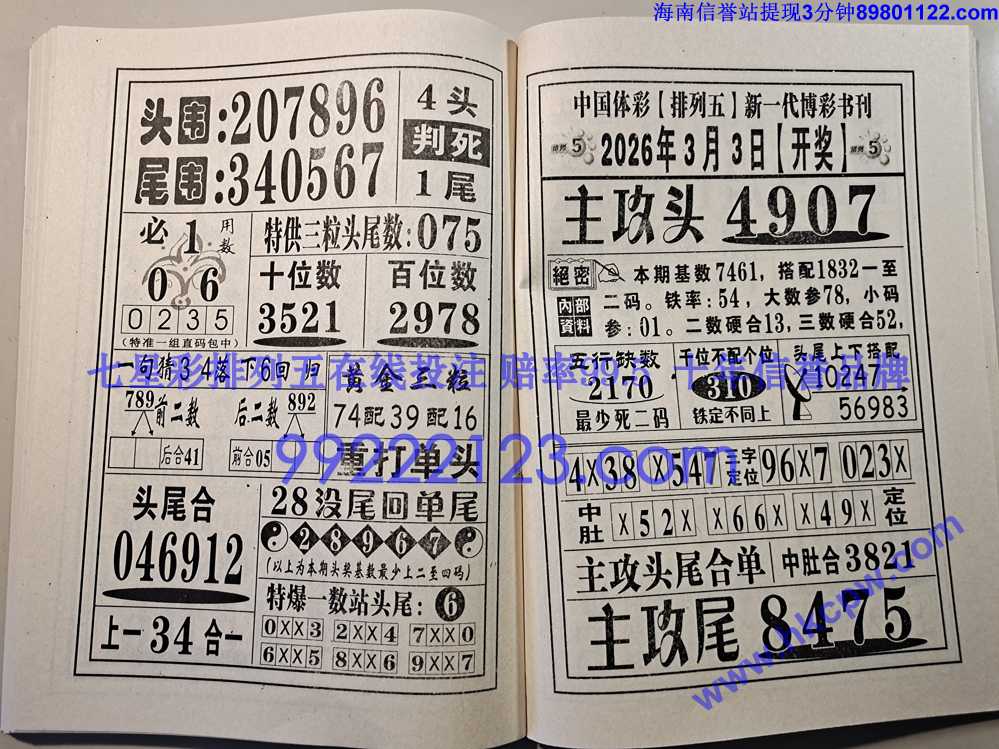 海南信誉站提现3分钟89801122.com
头围:207896
尾围:340567
4头
判死
1尾
必1用数
0 6
0 2 3 5
(特准一组直码包中)
特供三粒头尾数:075
十位数
3521
百位数
2978
七星彩排列五在线投注 赔率99.5 十年信誉品牌
一句猜34落下6回归
789前二数 后二数892
后合41 前合05
黄金三粒
74配39配16
重打单头
99222123.com
头尾合
046912
上一34合一
28没尾回单尾
2 8 9 6 7
(以上为本期头奖基数最少上二至四码)
特爆一数站头尾:6
0XX3 2XX4 7XX0
6XX5 8XX6 9XX7
中国体彩【排列五】新一代博彩书刊
5 2026年3月3日【开奖】 5
主攻头4907
絕密
內部資料
本期基数7461,搭配1832一至
二码。铁率:54,大数参78,小码
参:01。二数硬合13,三数硬合52,
五行缺数
2170
最少死二码
千位不配个位
310
铁定不同上
头尾上下搭配
10247
56983
4X38 X547 三字定位 96X7 023X
中肚 X52X X66X X49X 定位
主攻头尾合单 中肚合3821
主攻尾8475
www.hkcpw.com